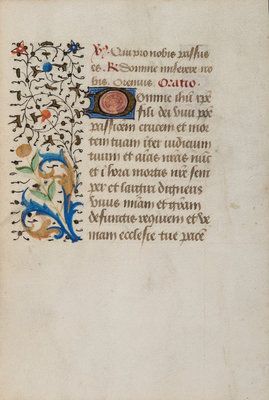 V. Qui pro nobis passus
es. R. Domine miserere no
bis. Oremus. Oratio.
Domine ihu xpe
fili dei vivi pone
passionem crucem et mor
tem tuam iter iudicium
tuum et aīas nrās nūc
et ī hora mortis nrē sem
per et largiri digneris
vivis mīam et grām
defunctis requiem et ve
niam ecclesie tue pacē